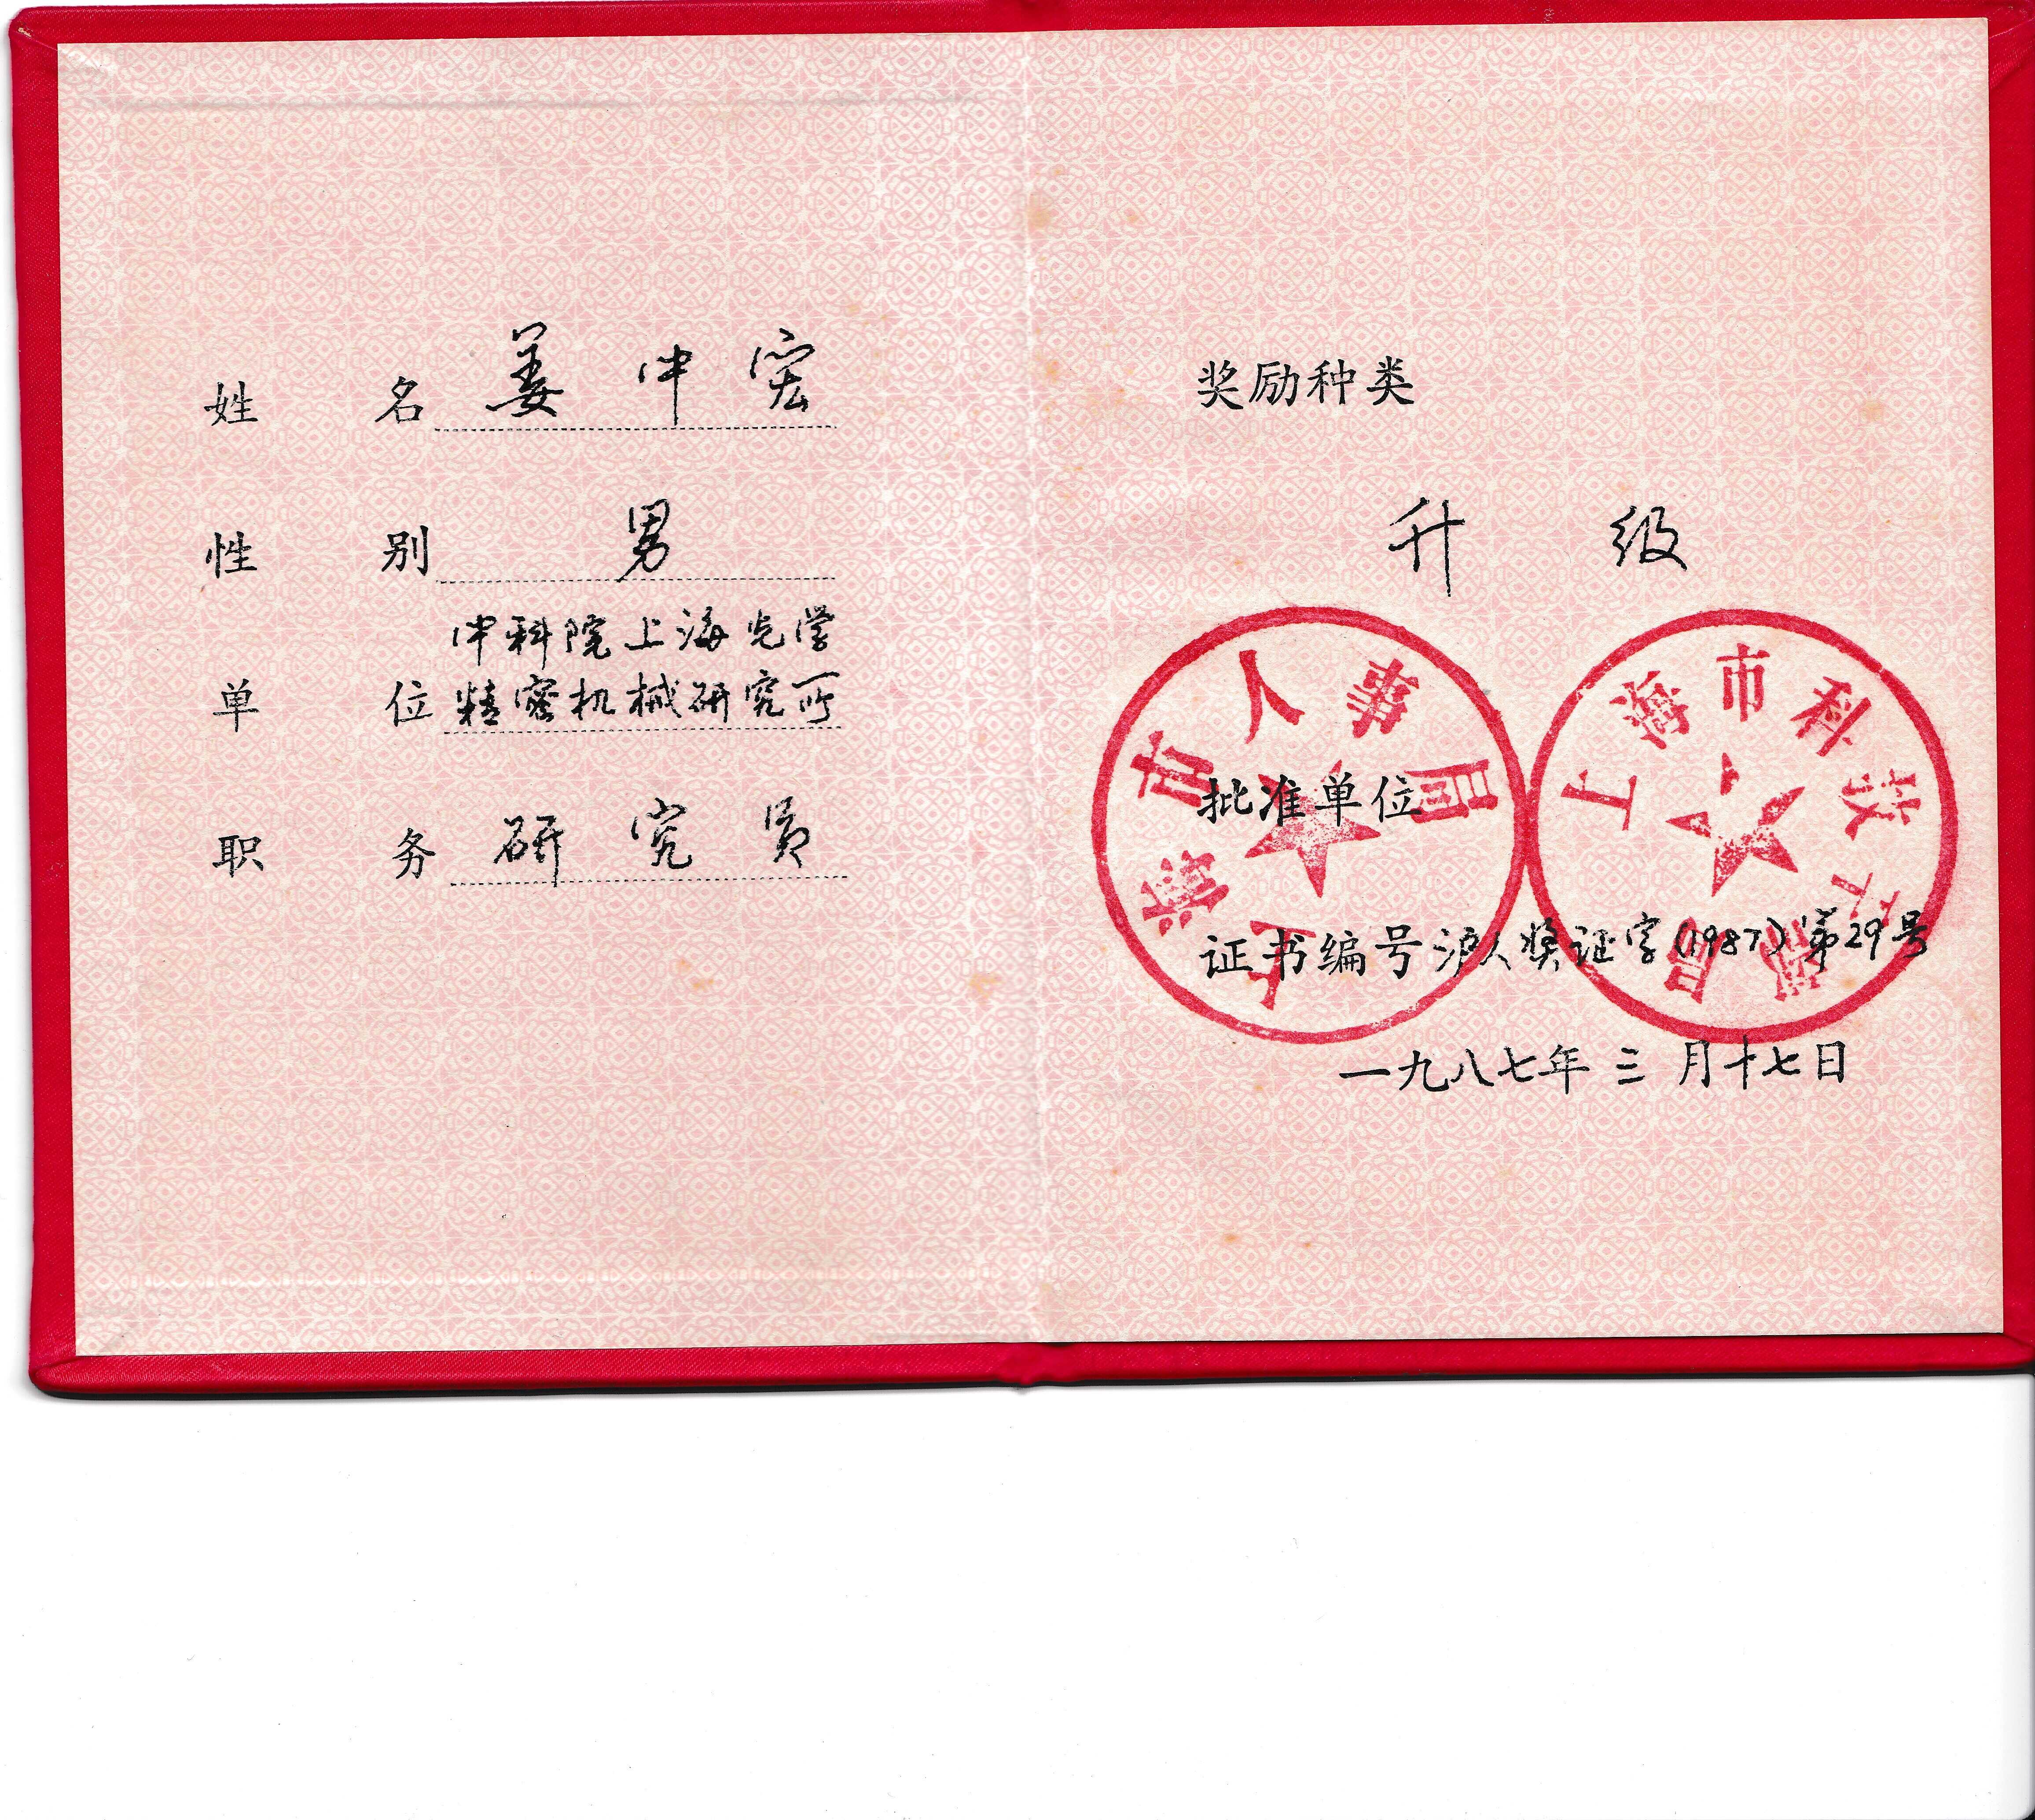 姓名 姜中宏
性别 男
单位 中科院上海光学
精密机械研究所
职务 研究员
奖励种类
升级
上海市人事局
上海市科技干部局
批准单位
证书编号沪人奖证字(1987)第29号
一九八七年三月十七日